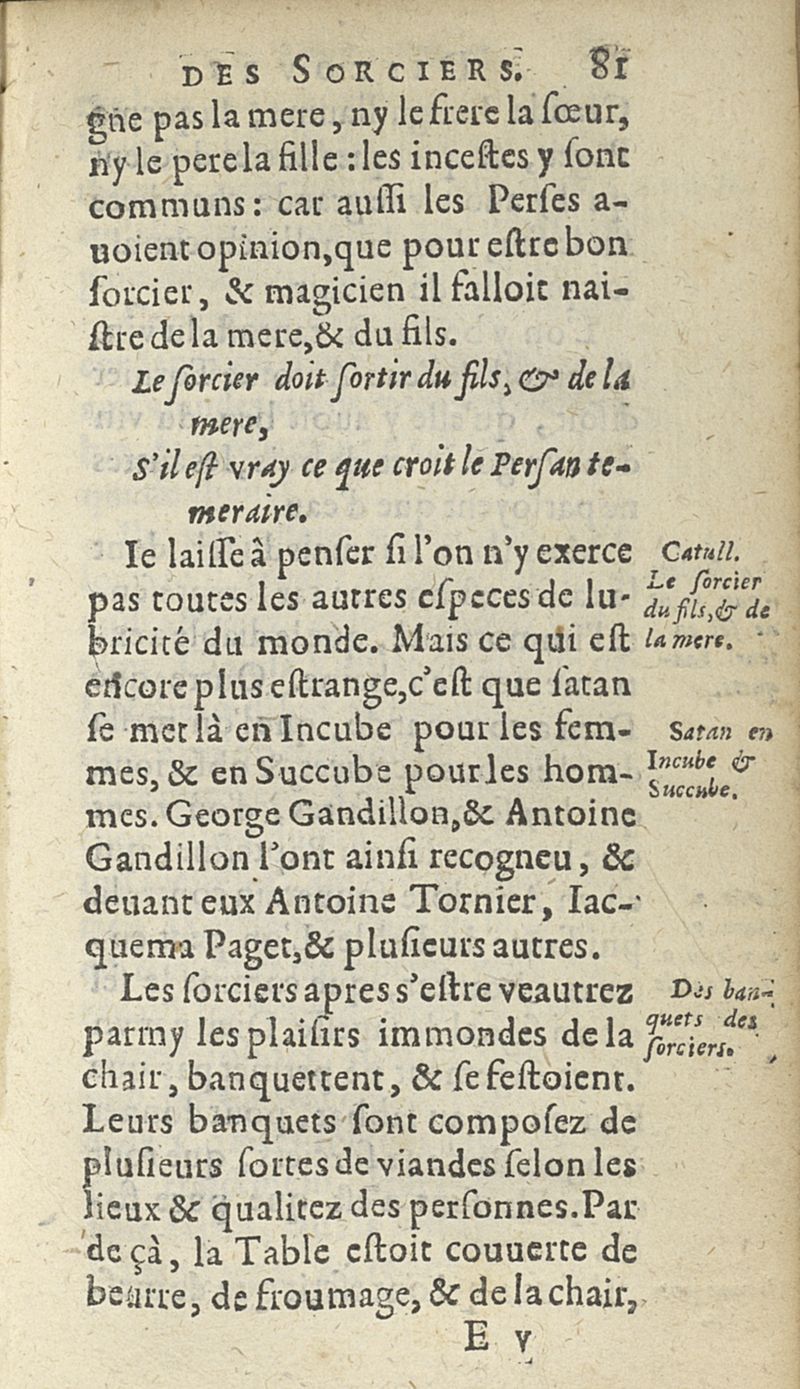 DES SORCIERS. 81
gne pas la mere, ny le frere la sœur,
ny le pere la fille : les incestes y sont
communs : car aussi les Perses a-
uoient opinion, que pour estre bon
sorcier, & magicien il falloit nai-
stre de la mere, & du fils.
Le sorcier doit sortir du fils, & de la
mere,
S'il est vray ce que croit le Persan te-
meraire.
Ie laisse à penser si l'on n'y exerce
Catull.
pas toutes les autres especes de lu-
Le sorcier
du fils, & de
bricité du monde. Mais ce qui est
la mere.
encore plus estrange, c'est que satan
se met là en Incube pour les fem-
Satan en
mes, & en Succube pour les hom-
Incube &
Succube.
mes. George Gandillon, & Antoine
Gandillon l'ont ainsi recogneu, &
deuant eux Antoine Tornier, Iac-
quema Paget, & plusieurs autres.
Les sorciers apres s'estre veautrez
Des ban-
parmy les plaisirs immondes de la
quets des
sorciers.
chair, banquettent, & se festoient.
Leurs banquets sont composez de
plusieurs sortes de viandes selon les
lieux & qualitez des personnes. Par
de çà, la Table estoit couuerte de
beurre, de froumage, & de la chair,
E v